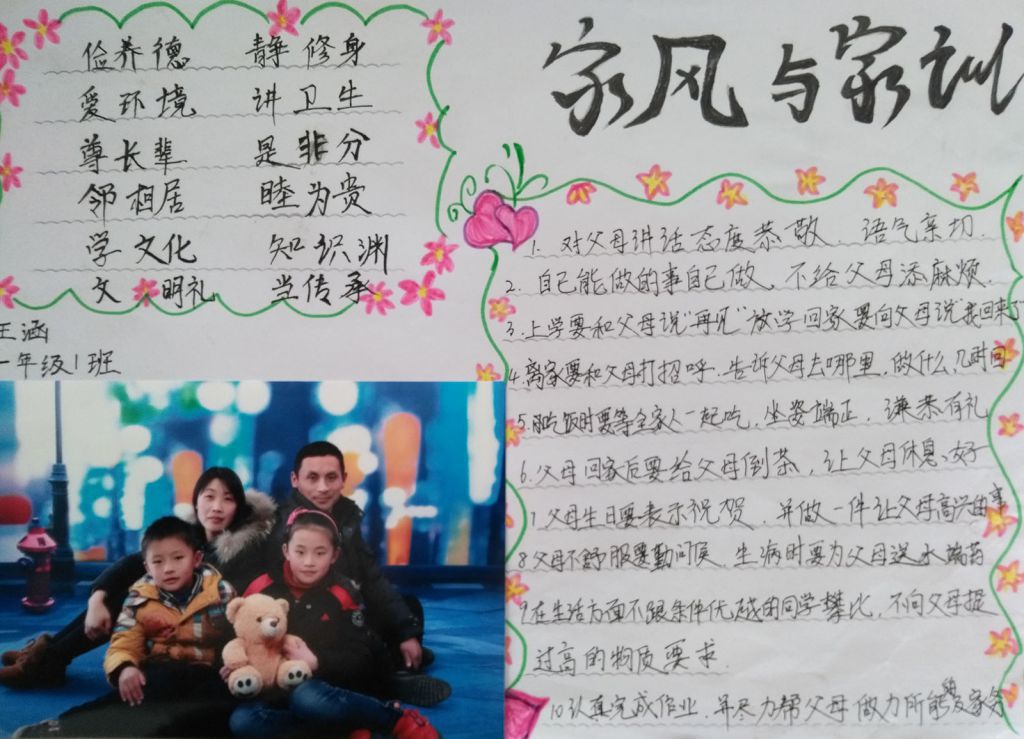 俭养德 静修身
爱环境 讲卫生
尊长辈 是非分
邻相居 睦为贵
学文化 知识渊
文明礼 当传承
王涵
一年级1班
家风与家训
1. 对父母讲话态度恭敬 语气亲切.
2. 自己能做的事自己做、不给父母添麻烦.
3.上学要和父母说"再见"放学回家要向父母说"我回来了
4.离家要和父母打招呼.告诉父母去哪里.做什么.几时回
5.吃饭时要等全家人一起吃，坐姿端正，谦恭有礼
6.父母回家后要给父母倒茶，让父母休息好
7父母生日要表示祝贺.并做一件让父母高兴的事
8父母不舒服要勤问候.生病时要为父母送水端药
9在生活方面不跟条件优越的同学攀比，不向父母提
过高的物质要求.
10认真完成作业.并尽力帮父母做力所能及家务